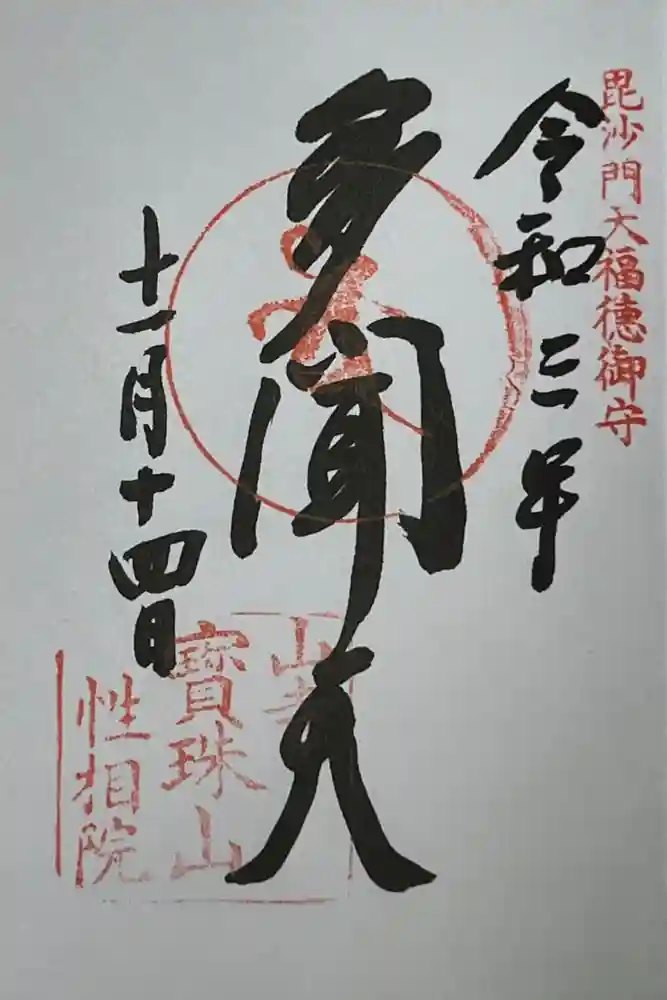 毘沙門天福徳御守
令和三年
多聞天
十一月十四日
山寺
寶珠山
性相院